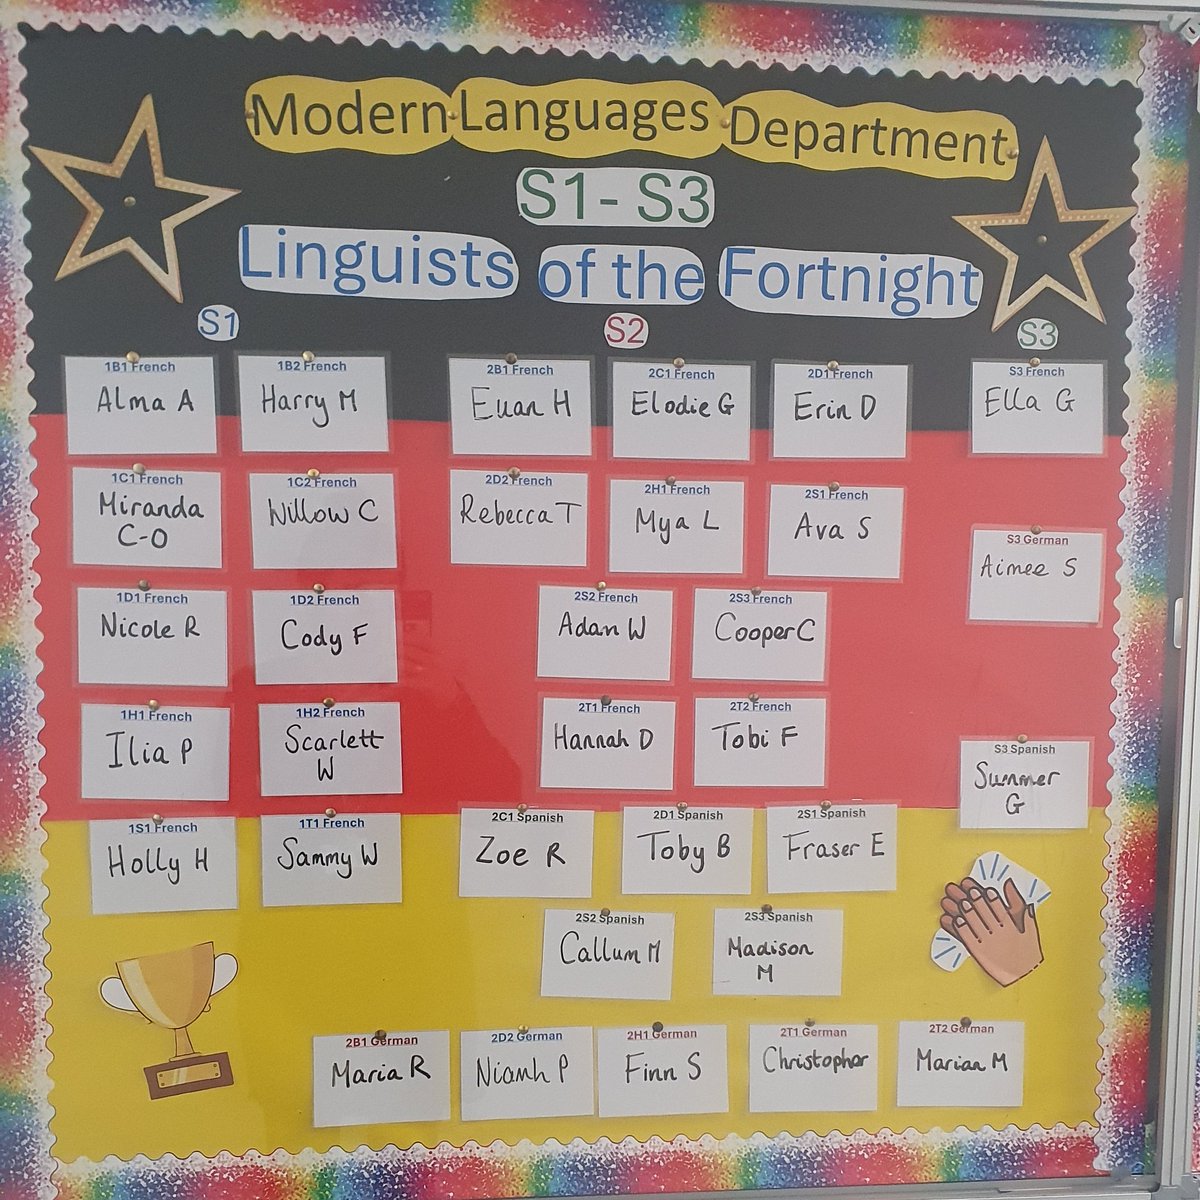 Modern Languages Department
S1 - S3
Linguists of the Fortnight
S1
S2
S3
1B1 French
Alma A
1B2 French
Harry M
2B1 French
Euan H
2C1 French
Elodie G
2D1 French
Erin D
S3 French
Ella G
1C1 French
Miranda
C-O
1C2 French
Willow C
2D2 French
Rebecca T
2H1 French
Mya L
2S1 French
Ava S
S3 German
Aimee S
1D1 French
Nicole R
1D2 French
Cody F
2S2 French
Adam W
2S3 French
Cooper C
1H1 French
Ilia P
1H2 French
Scarlett
W
2T1 French
Hannah D
2T2 French
Tobi F
S3 Spanish
Summer
G
1S1 French
Holly H
1T1 French
Sammy W
2C1 Spanish
Zoe R
2D1 Spanish
Toby B
2S1 Spanish
Fraser E
2S2 Spanish
Callum M
2S3 Spanish
Madison
M
2B1 German
Maria R
2D2 German
Niamh P
2H1 German
Finn S
2T1 German
Christopher
2T2 German
Marian M